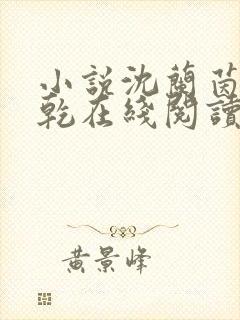 小説沈蘭茵
乾在綫閱讀
黃景峰